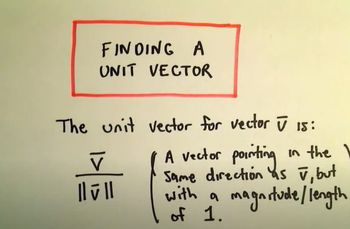 FINDING A
UNIT VECTOR
The unit vector for vector v̄ is:
v̄
‖v̄‖
(A vector pointing in the
same direction as v̄, but
with a magnitude/length
of 1.